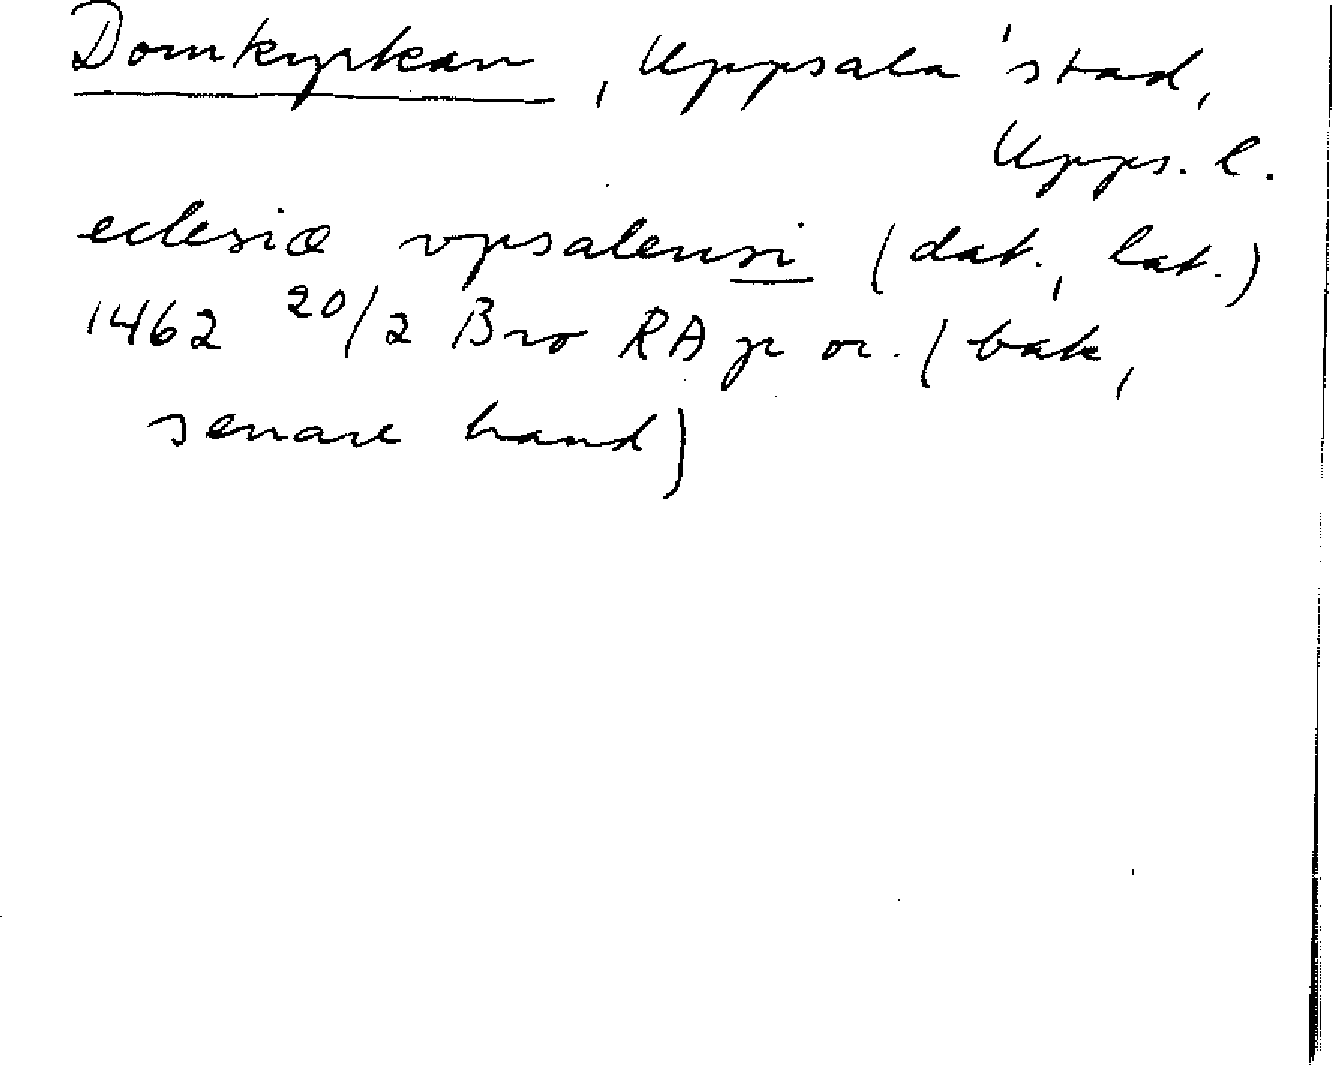 Domkyrkan, Uppsala stad,
Upps. l.
eclesiæ vpsalensi (dat., lat.)
1462 20/2 Bro RA p or. (bak,
senare hand)